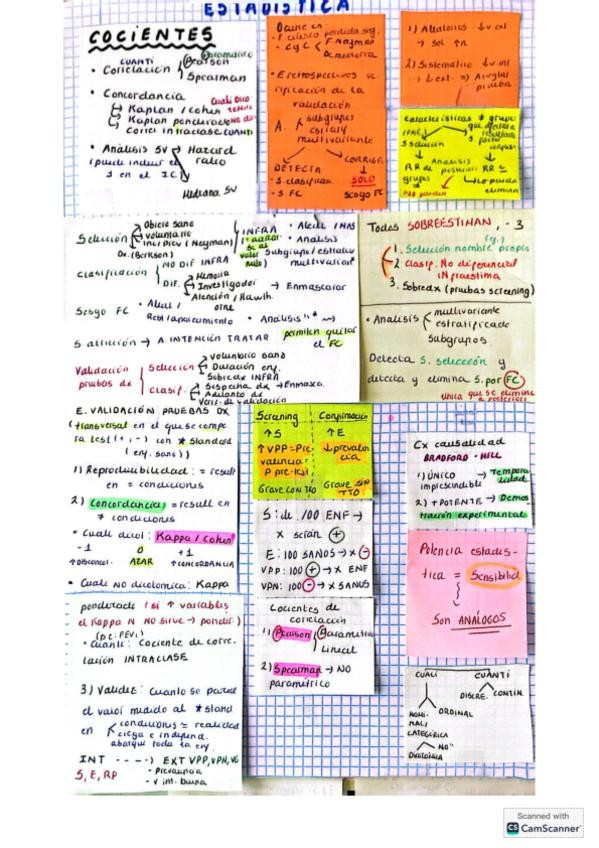 ESTADISTICA
COCIENTES
CUANTI
Parametrico
• Correlación Pearson
Spearman
• Concordancia
Kaplan / Cohen
Kaplan ponderado
Correl intraclase CUANTI
• Análisis SV Hazard
ratio
(puede incluir el
1 en el IC)
Mediana SV
Ocurre en:
• CyC F. Neyman
• E. retrospectivos
validación
A. subgrupos
multivariante
DETECTA
• S. clasificac.
• S. FC
CORRIGE
SOLO
Sesgo FC
1) Aleatorios - ↓v. ext
→ Sol ↑n
2) Sistematico ↓v. int
Arreglar
prueba
Características ≠ grupos
S selección
Análisis
grupos
No pueden
eliminar
Selección
Obrero sano
voluntario
Inci prev (Neyman)
Dx. (Berkson)
INFRA
• Aleat / MAS
• Analisis
Subgrupo / estratos
multivariante
Clasificación NO DIF INFRA
DIF. Memoria
Investigador → Enmascarar
Atención / Hawth.
orne
Sesgo FC • Aleat /
Rest / apareamiento • Analisis
S attrition → A. INTENCIÓN TRATAR
permiten quitar
el FC
Validación
pruebas dx
Selección Voluntario sano
Duración enf.
Sobredx INFRA
Clasif. Sospecha dx → Enmasca.
Adelanto dx
Verif. de validación
Todos SOBREESTIMAN, - 3
1. Selección nombre propio
2. Clasif. No diferencial
INFRAestima
3. Sobredx (pruebas screening)
• Analisis multivariante
estratificado
subgrupos.
Detecta S. selección y
detecta y elimina S. por FC
única que se elimina
a posteriori
E. VALIDACIÓN PRUEBAS DX
(transversal en el que se compa
ra test (+, -) con * standard
(enf, sano))
1) Reproducibilidad: = result
en = condiciones
2) Concordancia = result en
≠ condiciones
• Cuali dicot: Kappa / Cohen
-1 0 +1
↑DISCONCOR. AZAR ↑CONCORDANCIA
• Cuali NO dicotomica: Kappa
ponderado (si ↑ variables
el Kappa N NO SIRVE → ponder.)
(p.e: FEVI)
• Cuanti: Cociente de corre-
lación INTRACLASE
3) Validez: Cuanto se parece
el valor medido al * stand
en condiciones = realidad
ciega e independ.
abarque toda la enf.
INT - - - -> EXT VPP, VPN, VG
S, E, RP • Prevalencia
• V int. buena
Screening Confirmación
↑S ↑E
↑VPP = Pre
valencia =
P pre-test
↓prevalen
cia
Grave con TTO Grave SIN
TTO
S: de 100 ENF →
x serán +
E: 100 SANOS → x -
VPP: 100 + → x ENF
VPN: 100 - → x SANOS
Cocientes de
correlación
1) Pearson Parametrico
Lineal
2) Spearman → NO
paramétrico
Cx causalidad
BRADFORD - HILL
1) ÚNICO → Tempora
imprescindible lidad
2) + POTENTE → Demos
tración experimental
Potencia estadis-
tica = Sensibilid
Son ANÁLOGOS
CUALI CUANTI
DISCRE. CONTIN.
NOMI-
NAL/
CATEGÓRICA
ORDINAL
DICOTÓMICA
NO"
Scanned with
CS CamScanner